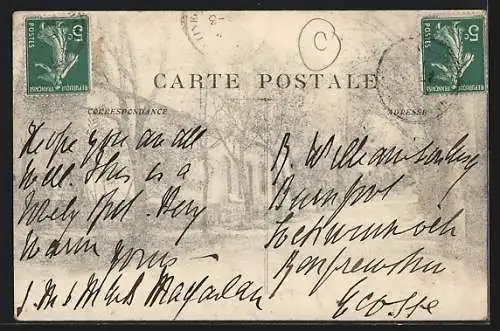 5c
POSTES
REPUBLIQUE FRANÇAISE
C
5c
POSTES
REPUBLIQUE FRANÇAISE
CARTE POSTALE
CORRESPONDANCE
ADRESSE
Hope you are all
well. This is a
lovely spot. Very
warm yours
Macfarlan
R. Williamson Esq
Burnfoot
Lochwinnoch
Renfrewshire
Ecosse